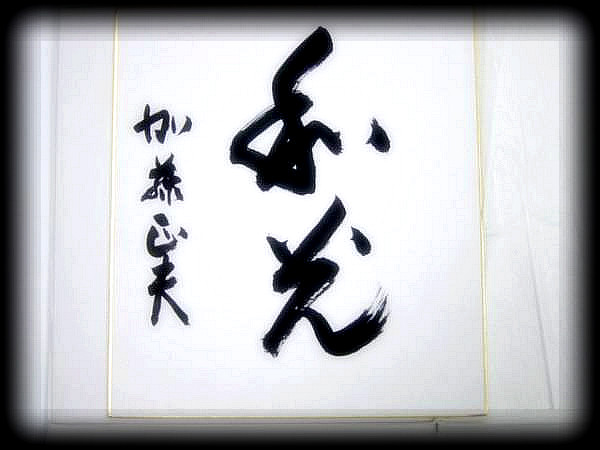 和光
加藤正夫